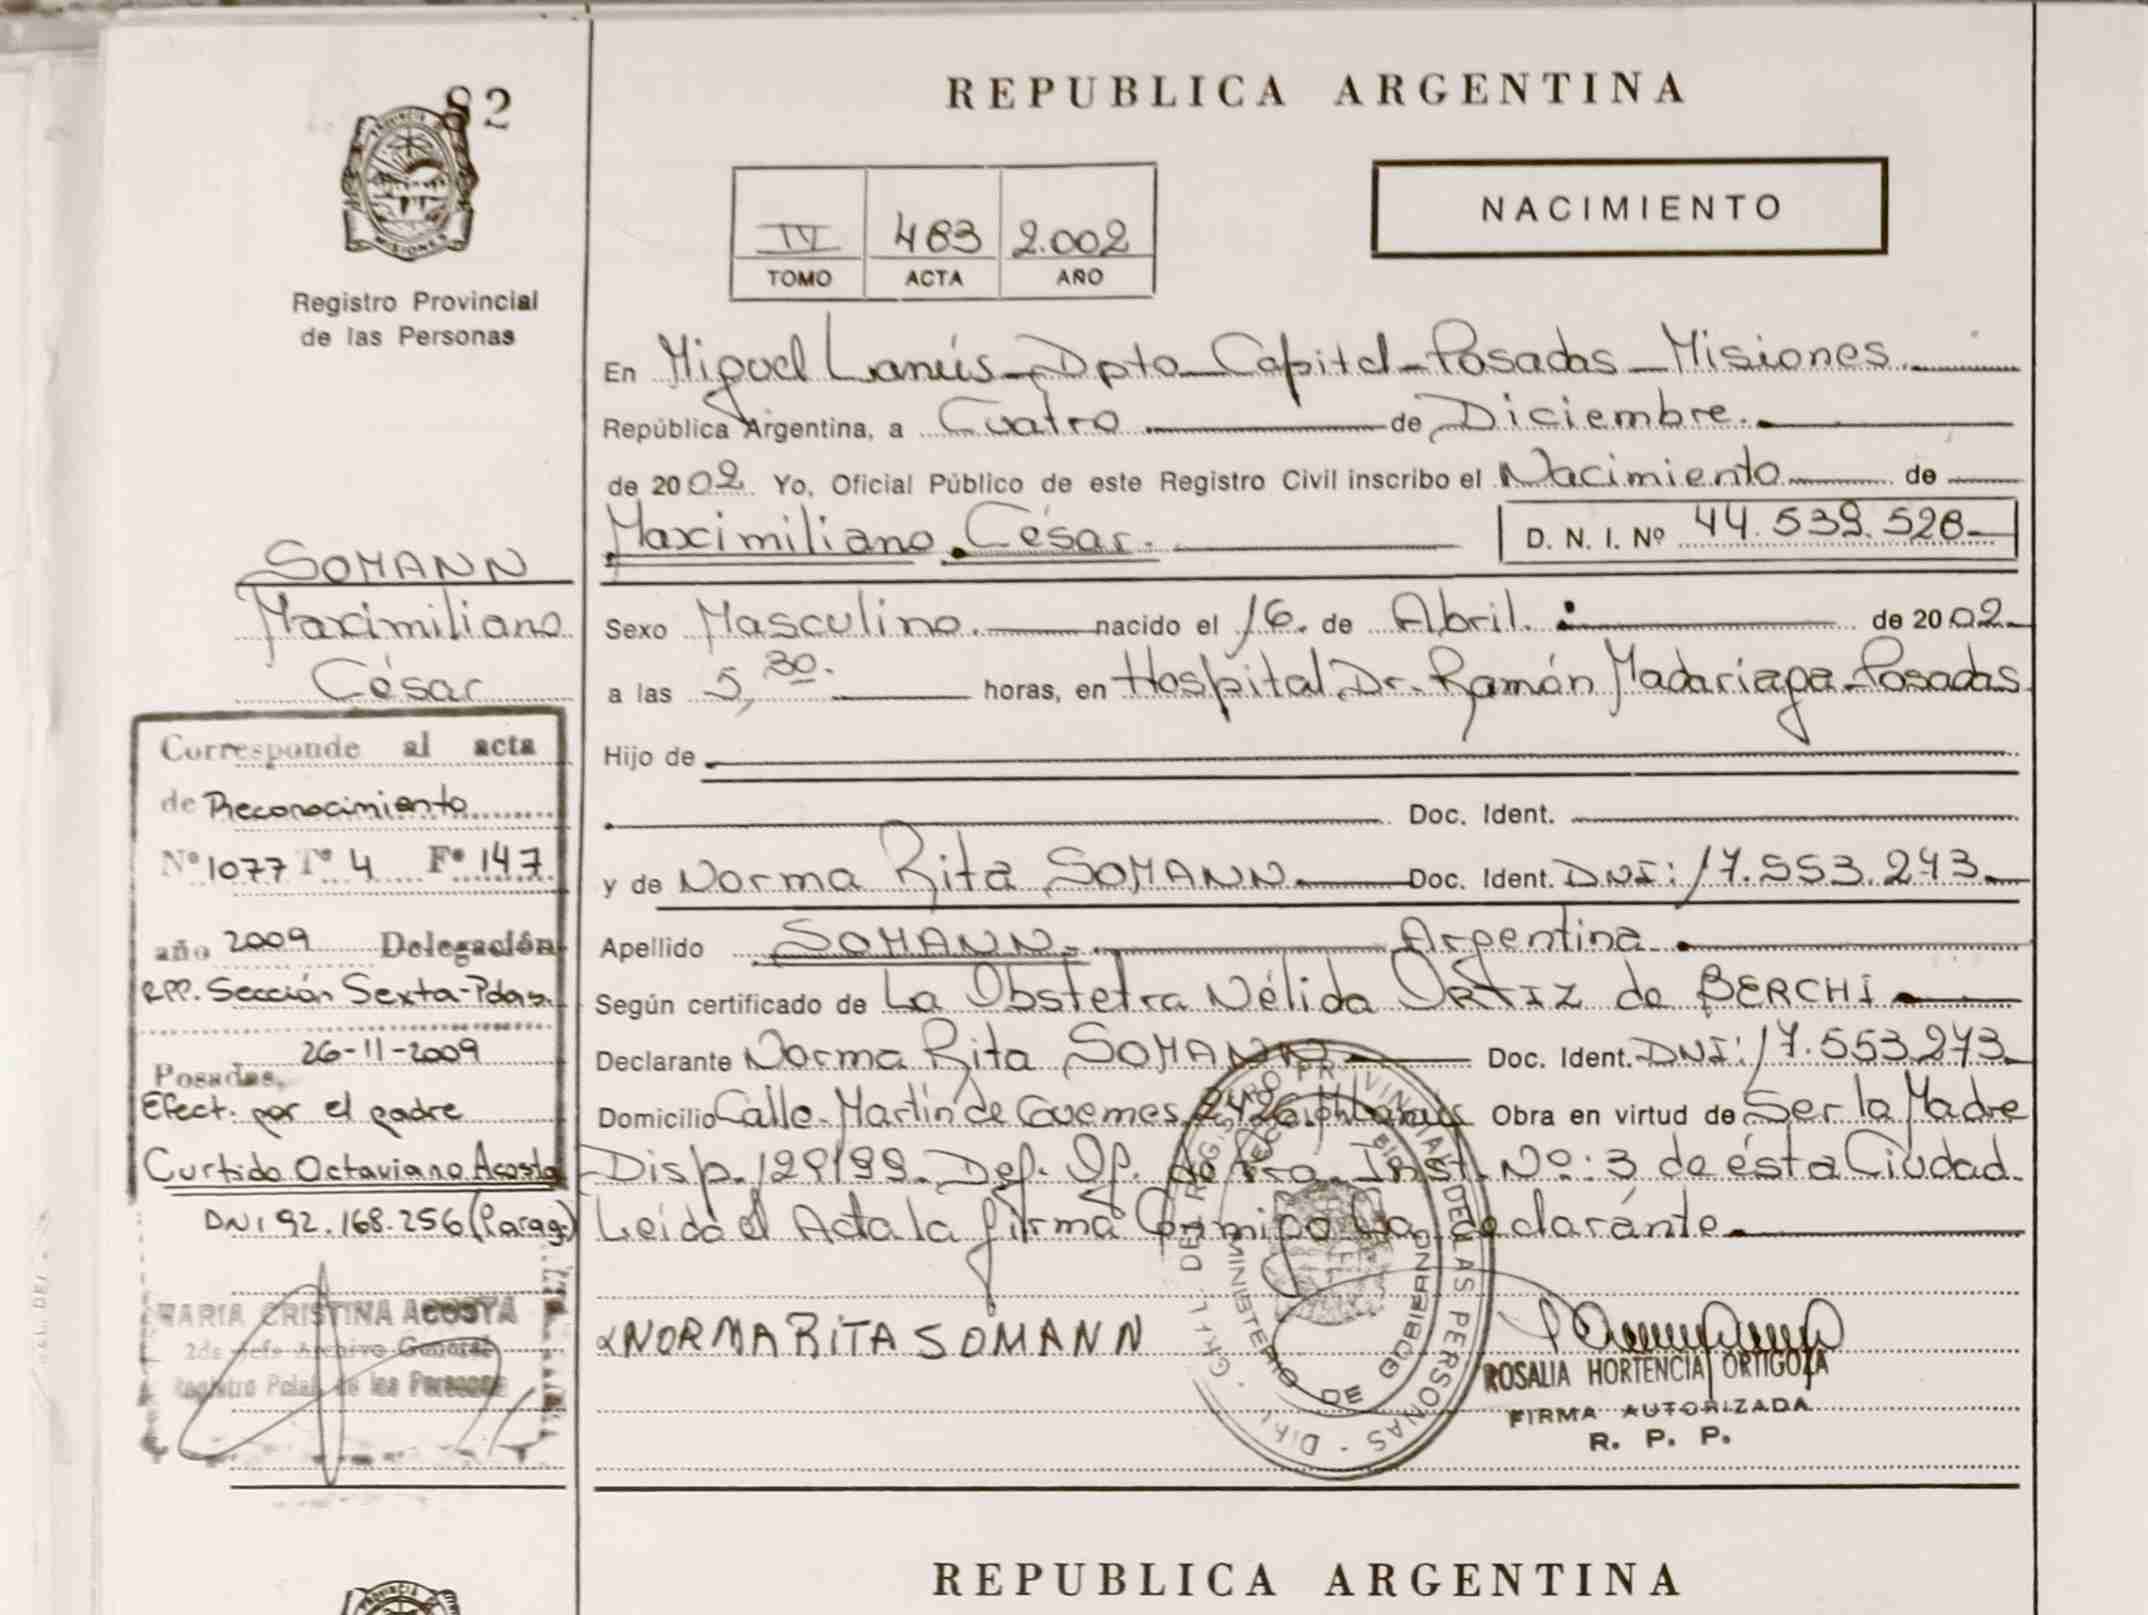 82
PROVINCIA DE
MISIONES
Registro Provincial
de las Personas
REPUBLICA ARGENTINA
NACIMIENTO
IV 483 2.002
TOMO ACTA AÑO
En Miguel Lanús - Dpto Capital - Posadas - Misiones.
República Argentina, a Cuatro de Diciembre.
de 2002. Yo, Oficial Público de este Registro Civil inscribo el Nacimiento de
Maximiliano César. D. N. I. Nº 44.539.528
Sexo Masculino. nacido el 16. de Abril. de 2002
a las 5,30. horas, en Hospital Dr. Ramón Madariaga - Posadas
Hijo de
Doc. Ident.
y de Norma Rita SOMANN Doc. Ident. DNI: 17.553.273
Apellido SOMANN Argentina.
Según certificado de La Obstetra Nélida ORTIZ de BERCHI
Declarante Norma Rita SOMANN Doc. Ident. DNI: 17.553.273
Domicilio Calle Martín de Guemes Lanus Obra en virtud de Ser la Madre
Disp. 129/99. Def. Of. de Inst. Nº: 3 de ésta Ciudad.
Leída el Acta la firma Conmigo La declaránte
X NORMA RITA SOMANN
ROSALIA HORTENCIA ORTIGOZA
FIRMA AUTORIZADA
R. P. P.
DEL REGISTRO PROVINCIAL DE LAS PERSONAS
MINISTERIO DE GOBIERNO
SOMANN
Maximiliano
César
Corresponde al acta
de Reconocimiento
Nº 1077 Tº 4 Fº 147
año 2009 Delegación
RPP. Sección Sexta - Pdas.
26-11-2009
Posadas,
Efect. por el padre
Curtido Octaviano Acosta
DNI 92.168.256 (Parag.)
MARIA CRISTINA ACOSTA
2da Jefe Archivo General
Registro Pcial. de las Personas
REPUBLICA ARGENTINA
PROVINCIA